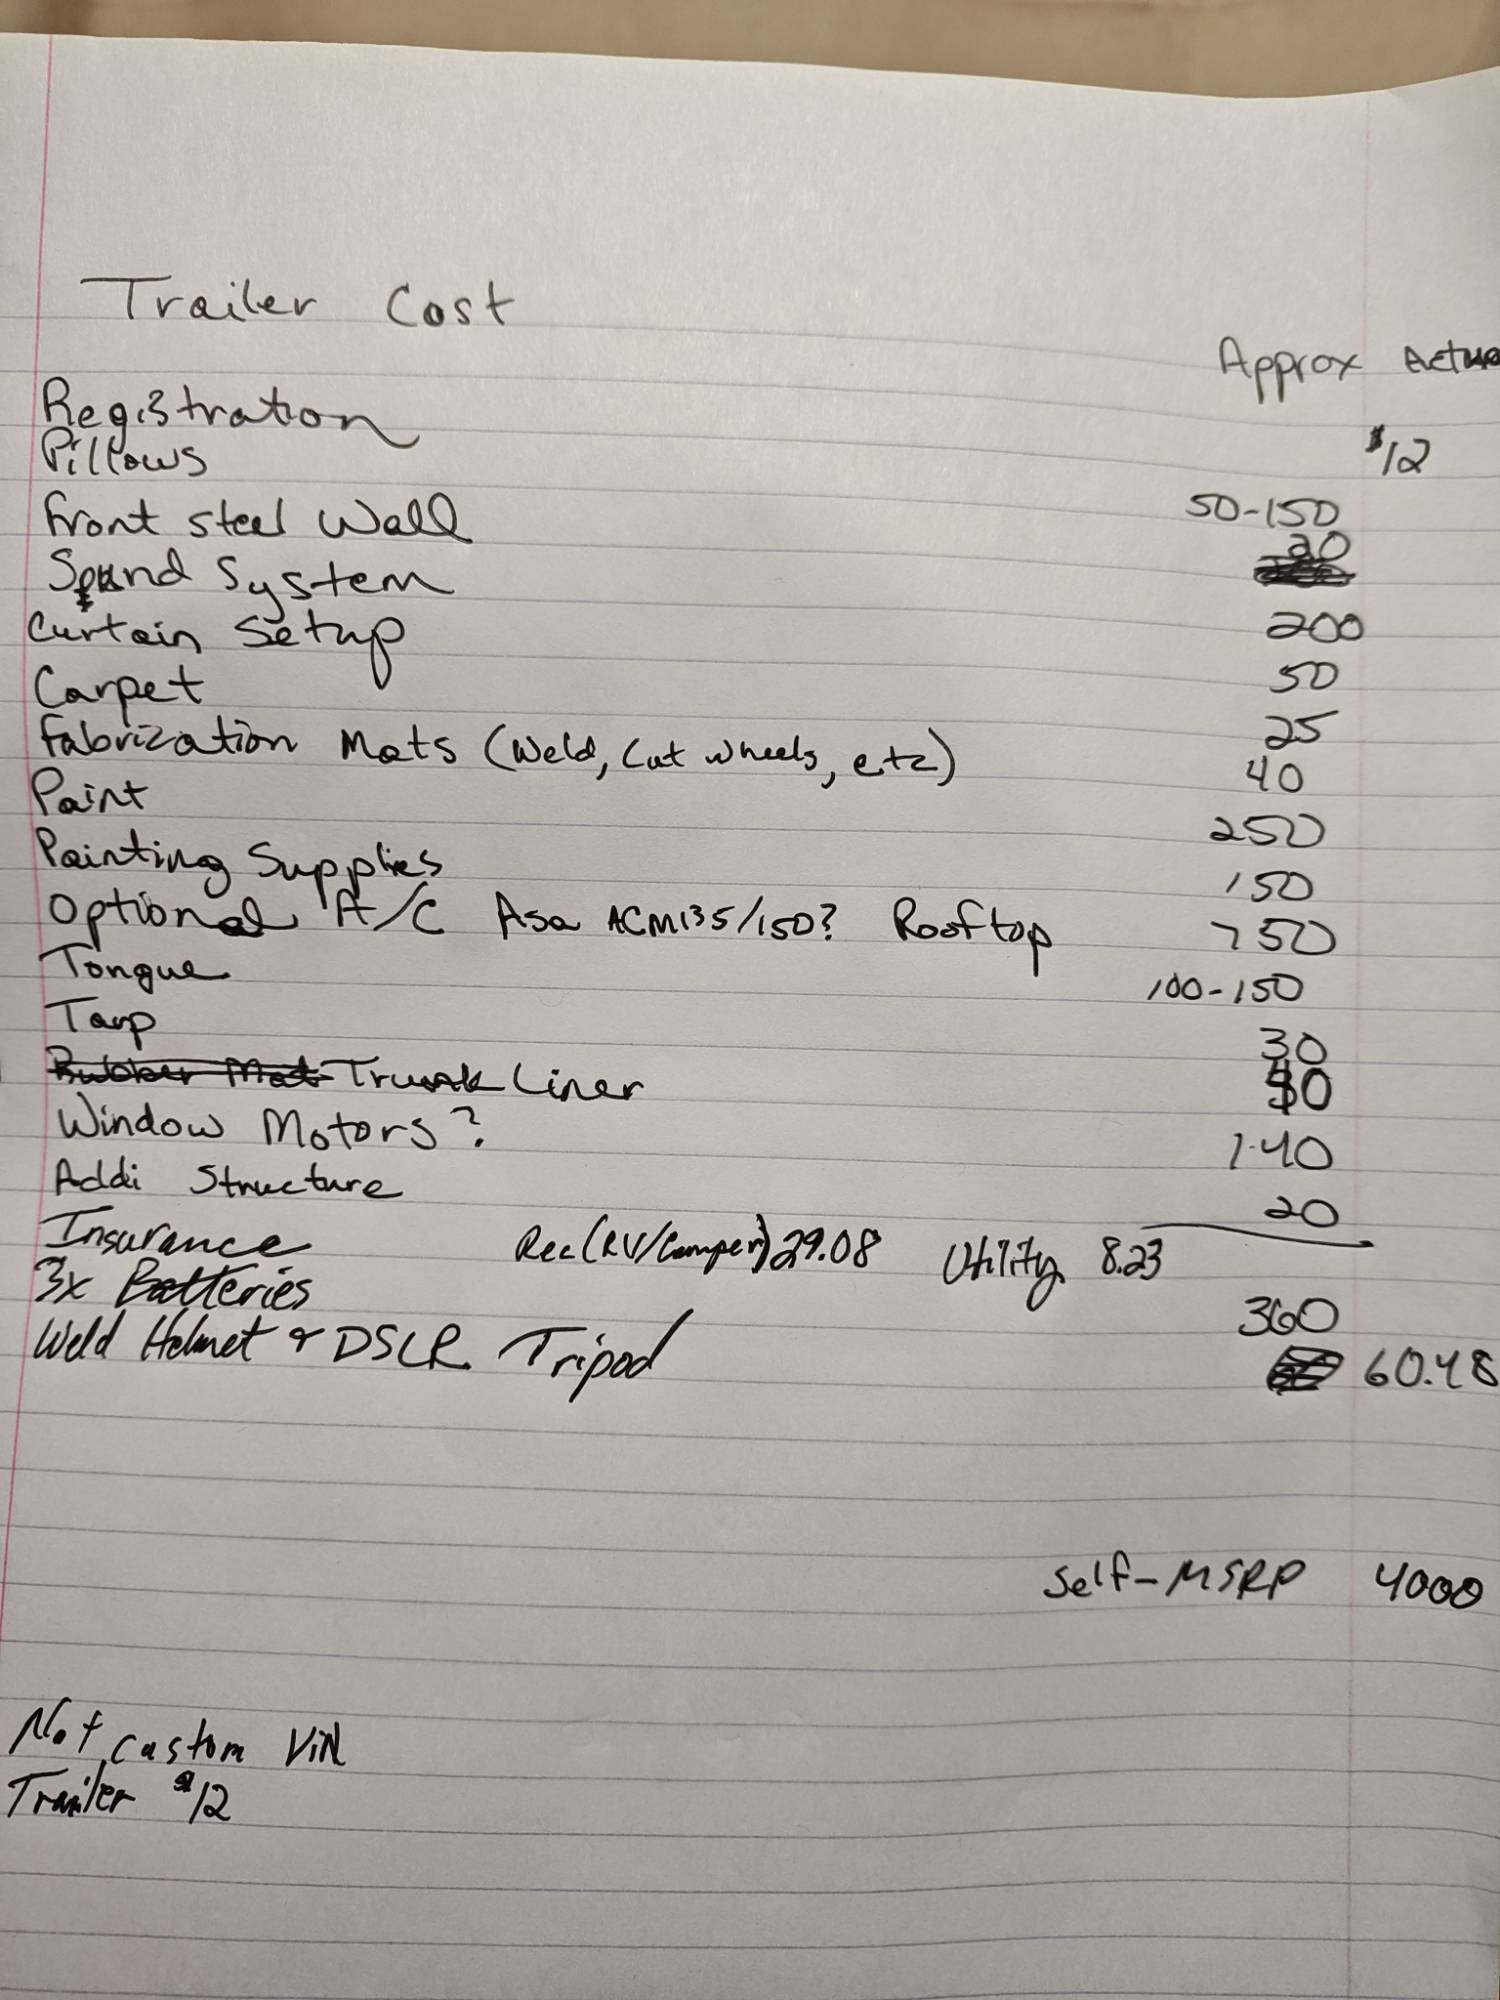 Trailer Cost
Approx Actua
Registration $12
Pillows 50-150
Front steel Wall 20
Sound System 200
Curtain Setup 50
Carpet 25
Fabrization Mats (Weld, Cut wheels, etc) 40
Paint 250
Painting Supplies 150
Optional A/C Asa ACM135/150? Rooftop 750
Tongue 100-150
Tarp 30
Rubber Mat Trunk Liner
Window Motors? 140
Addi Structure 20
Insurance Rec (RV/Camper) 29.08 Utility 8.23
3x Batteries 360
Weld Helmet & DSLR Tripod 60.48
Self-MSRP 4000
Not custom ViN
Trailer $12